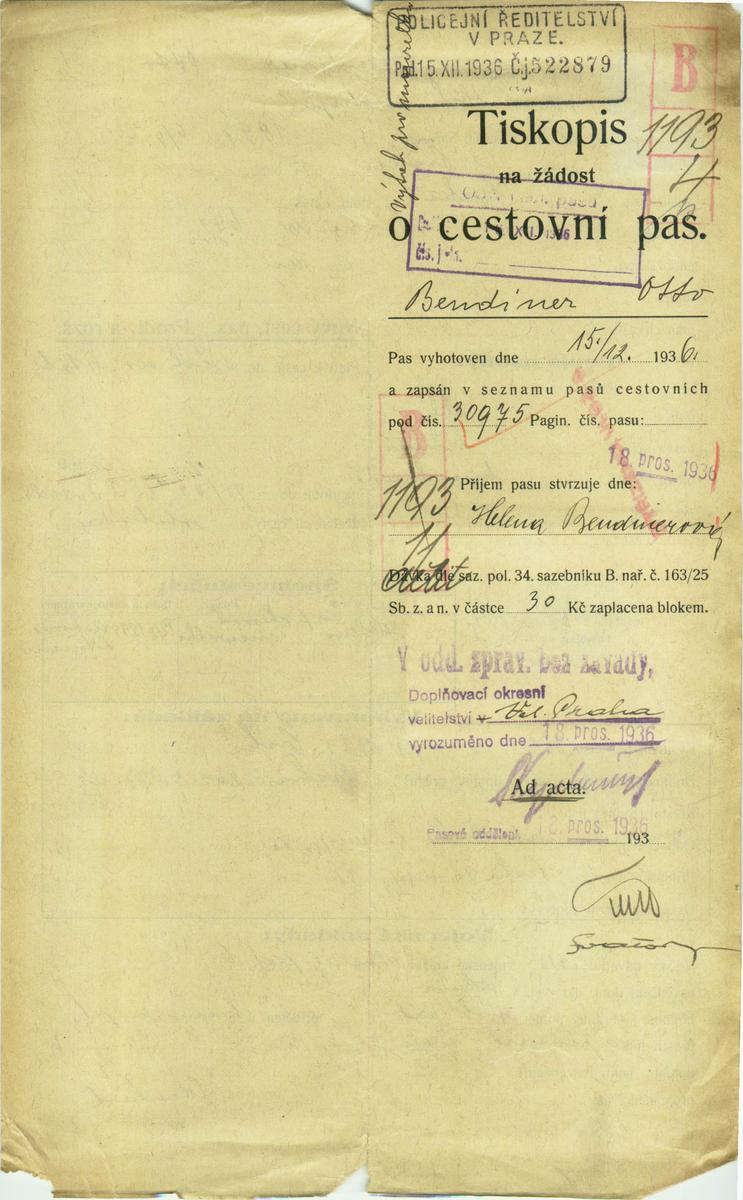 POLICEJNÍ ŘEDITELSTVÍ
V PRAZE.
15.XII.1936 Čj.522879
B
Tiskopis
1193
4
na žádost
o cestovní pas.
Bendiner Otto
Pas vyhotoven dne 15./12. 1936.
a zapsán v seznamu pasů cestovních
pod čís. 30975 Pagin. čís. pasu:
B
18. pros. 1936
1193
11
Příjem pasu stvrzuje dne:
Helena Bendinerová
Dávka dle saz. pol. 34. sazebníku B. nař. č. 163/25
Sb. z. a n. v částce 30 Kč zaplacena blokem.
V odd. zprav. bez závady,
Doplňovací okresní
velitelství v Vel. Praha
vyrozuměno dne 18. pros. 1936
Ad acta.
Pasové oddělení. 18. pros. 1936
193